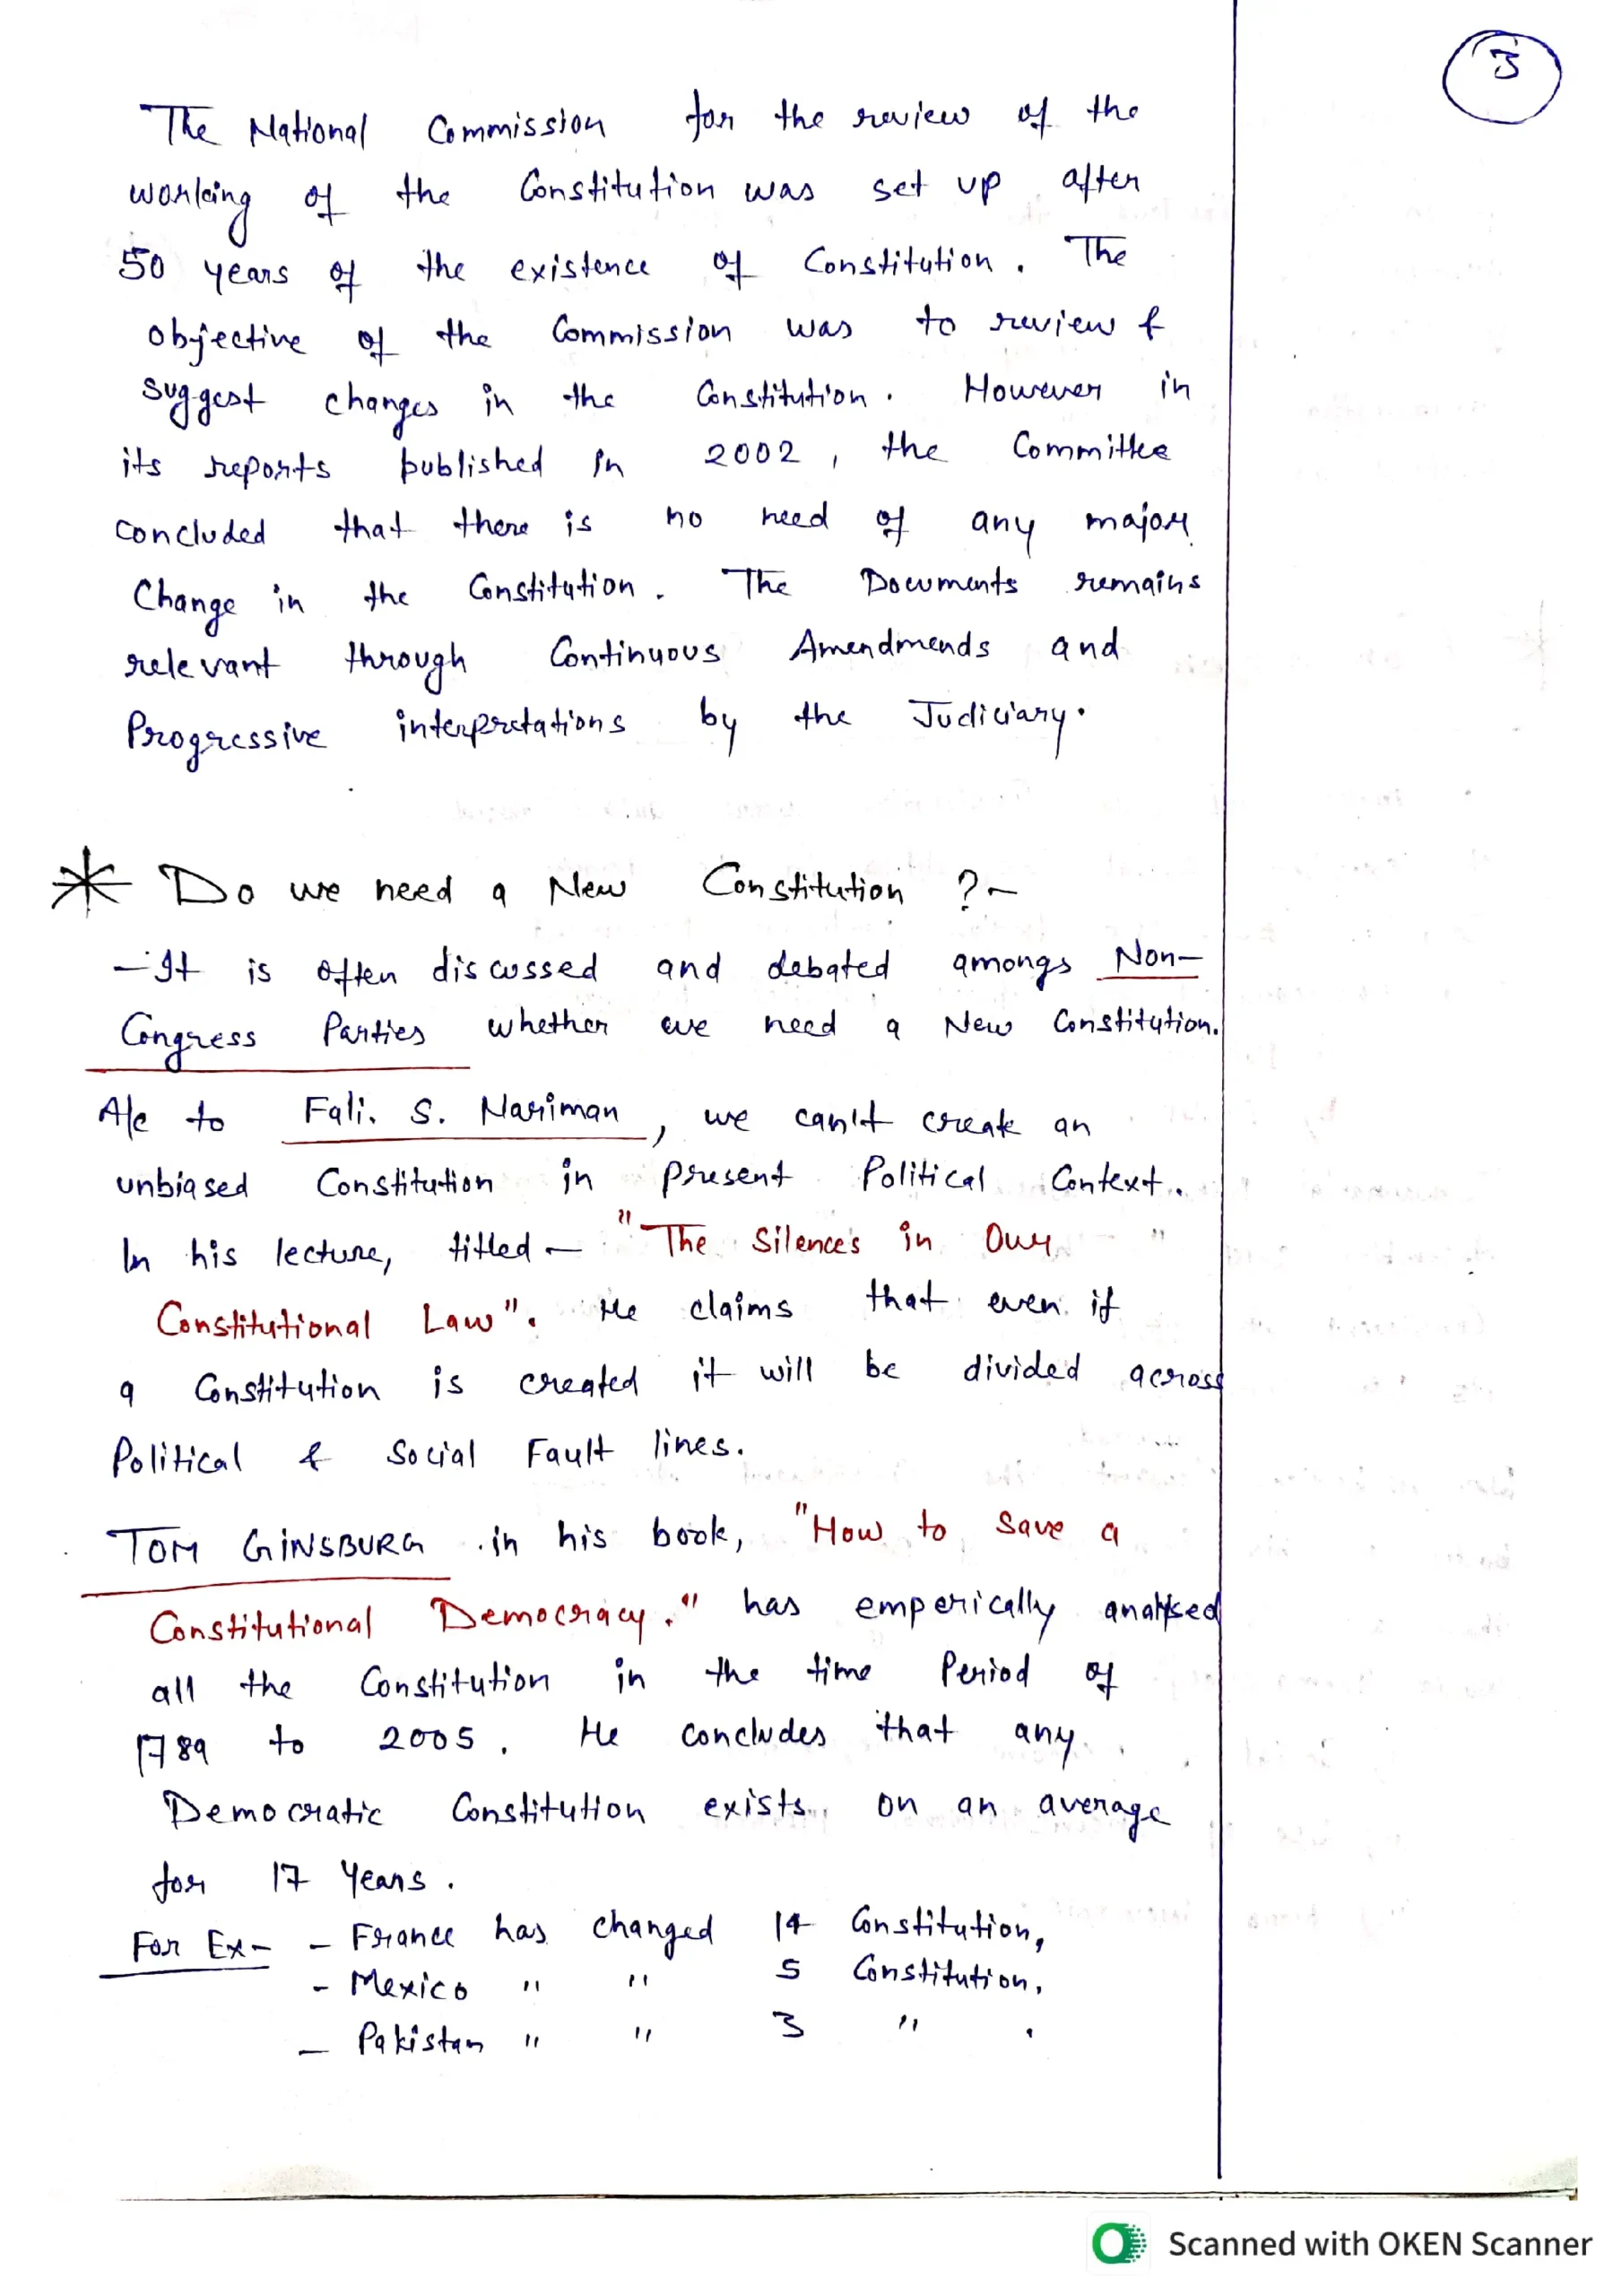 3
The National Commission for the review of the
working of the Constitution was set up after
50 years of the existence of Constitution. The
objective of the Commission was to review &
suggest changes in the Constitution. However in
its reports published in 2002, the Committee
concluded that there is no need of any major
Change in the Constitution. The Documents remains
relevant through Continuous Amendmends and
Progressive interpretations by the Judiciary.
* Do we need a New Constitution ?-
- It is often discussed and debated amongs Non-
Congress Parties whether we need a New Constitution.
A/c to Fali. S. Nariman, we can't create an
unbiased Constitution in present Political Context.
In his lecture, titled - "The Silences in Our "
Constitutional Law". He claims that even if
a Constitution is created it will be divided across
Political & Social Fault lines.
TOM GINSBURG in his book, "How to Save a
Constitutional Democracy." has emperically analysed
all the Constitution in the time Period of
1789 to 2005. He concludes that any
Democratic Constitution exists on an average
for 17 Years.
For Ex- - France has changed 14 Constitution,
- Mexico " " 5 Constitution,
- Pakistan " " 3 " .
Scanned with OKEN Scanner